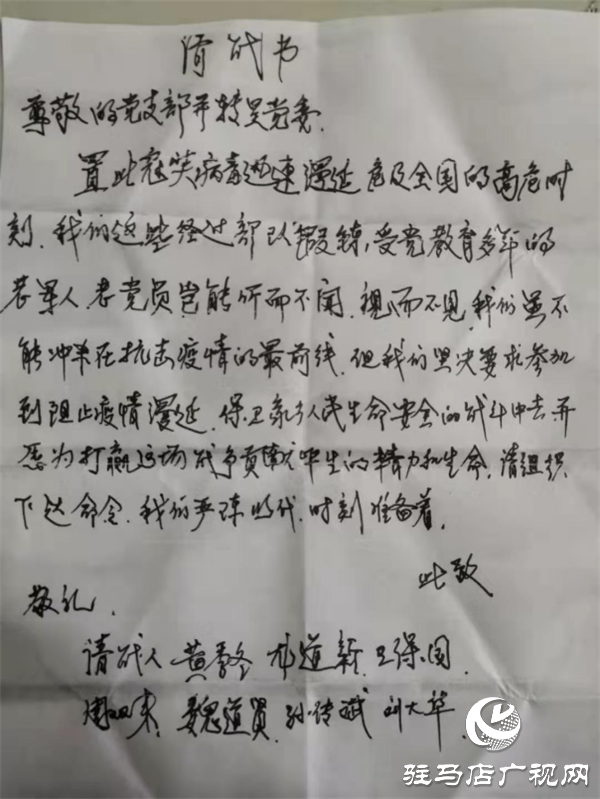 请战书
尊敬的党支部并转呈党委.
置此冠状病毒迅速漫延危及全国的高危时
刻.我们这些经过部队锻鍊,受党教育多年的
老军人.老党员岂能听而不闻.视而不见,我们虽不
能冲杀在抗击疫情的最前线.但我们坚决要求参加
到阻止疫情漫延.保卫家乡人民生命安全的战斗中去并
愿为打赢这场战争贡献毕生的精力和生命.请组织
下达命令.我们严阵以待.时刻准备着.
此致
敬礼.
请战人 黄 道新.卫保国.
周 来.魏道贤.孙传斌 刘大华.
驻马店广视网